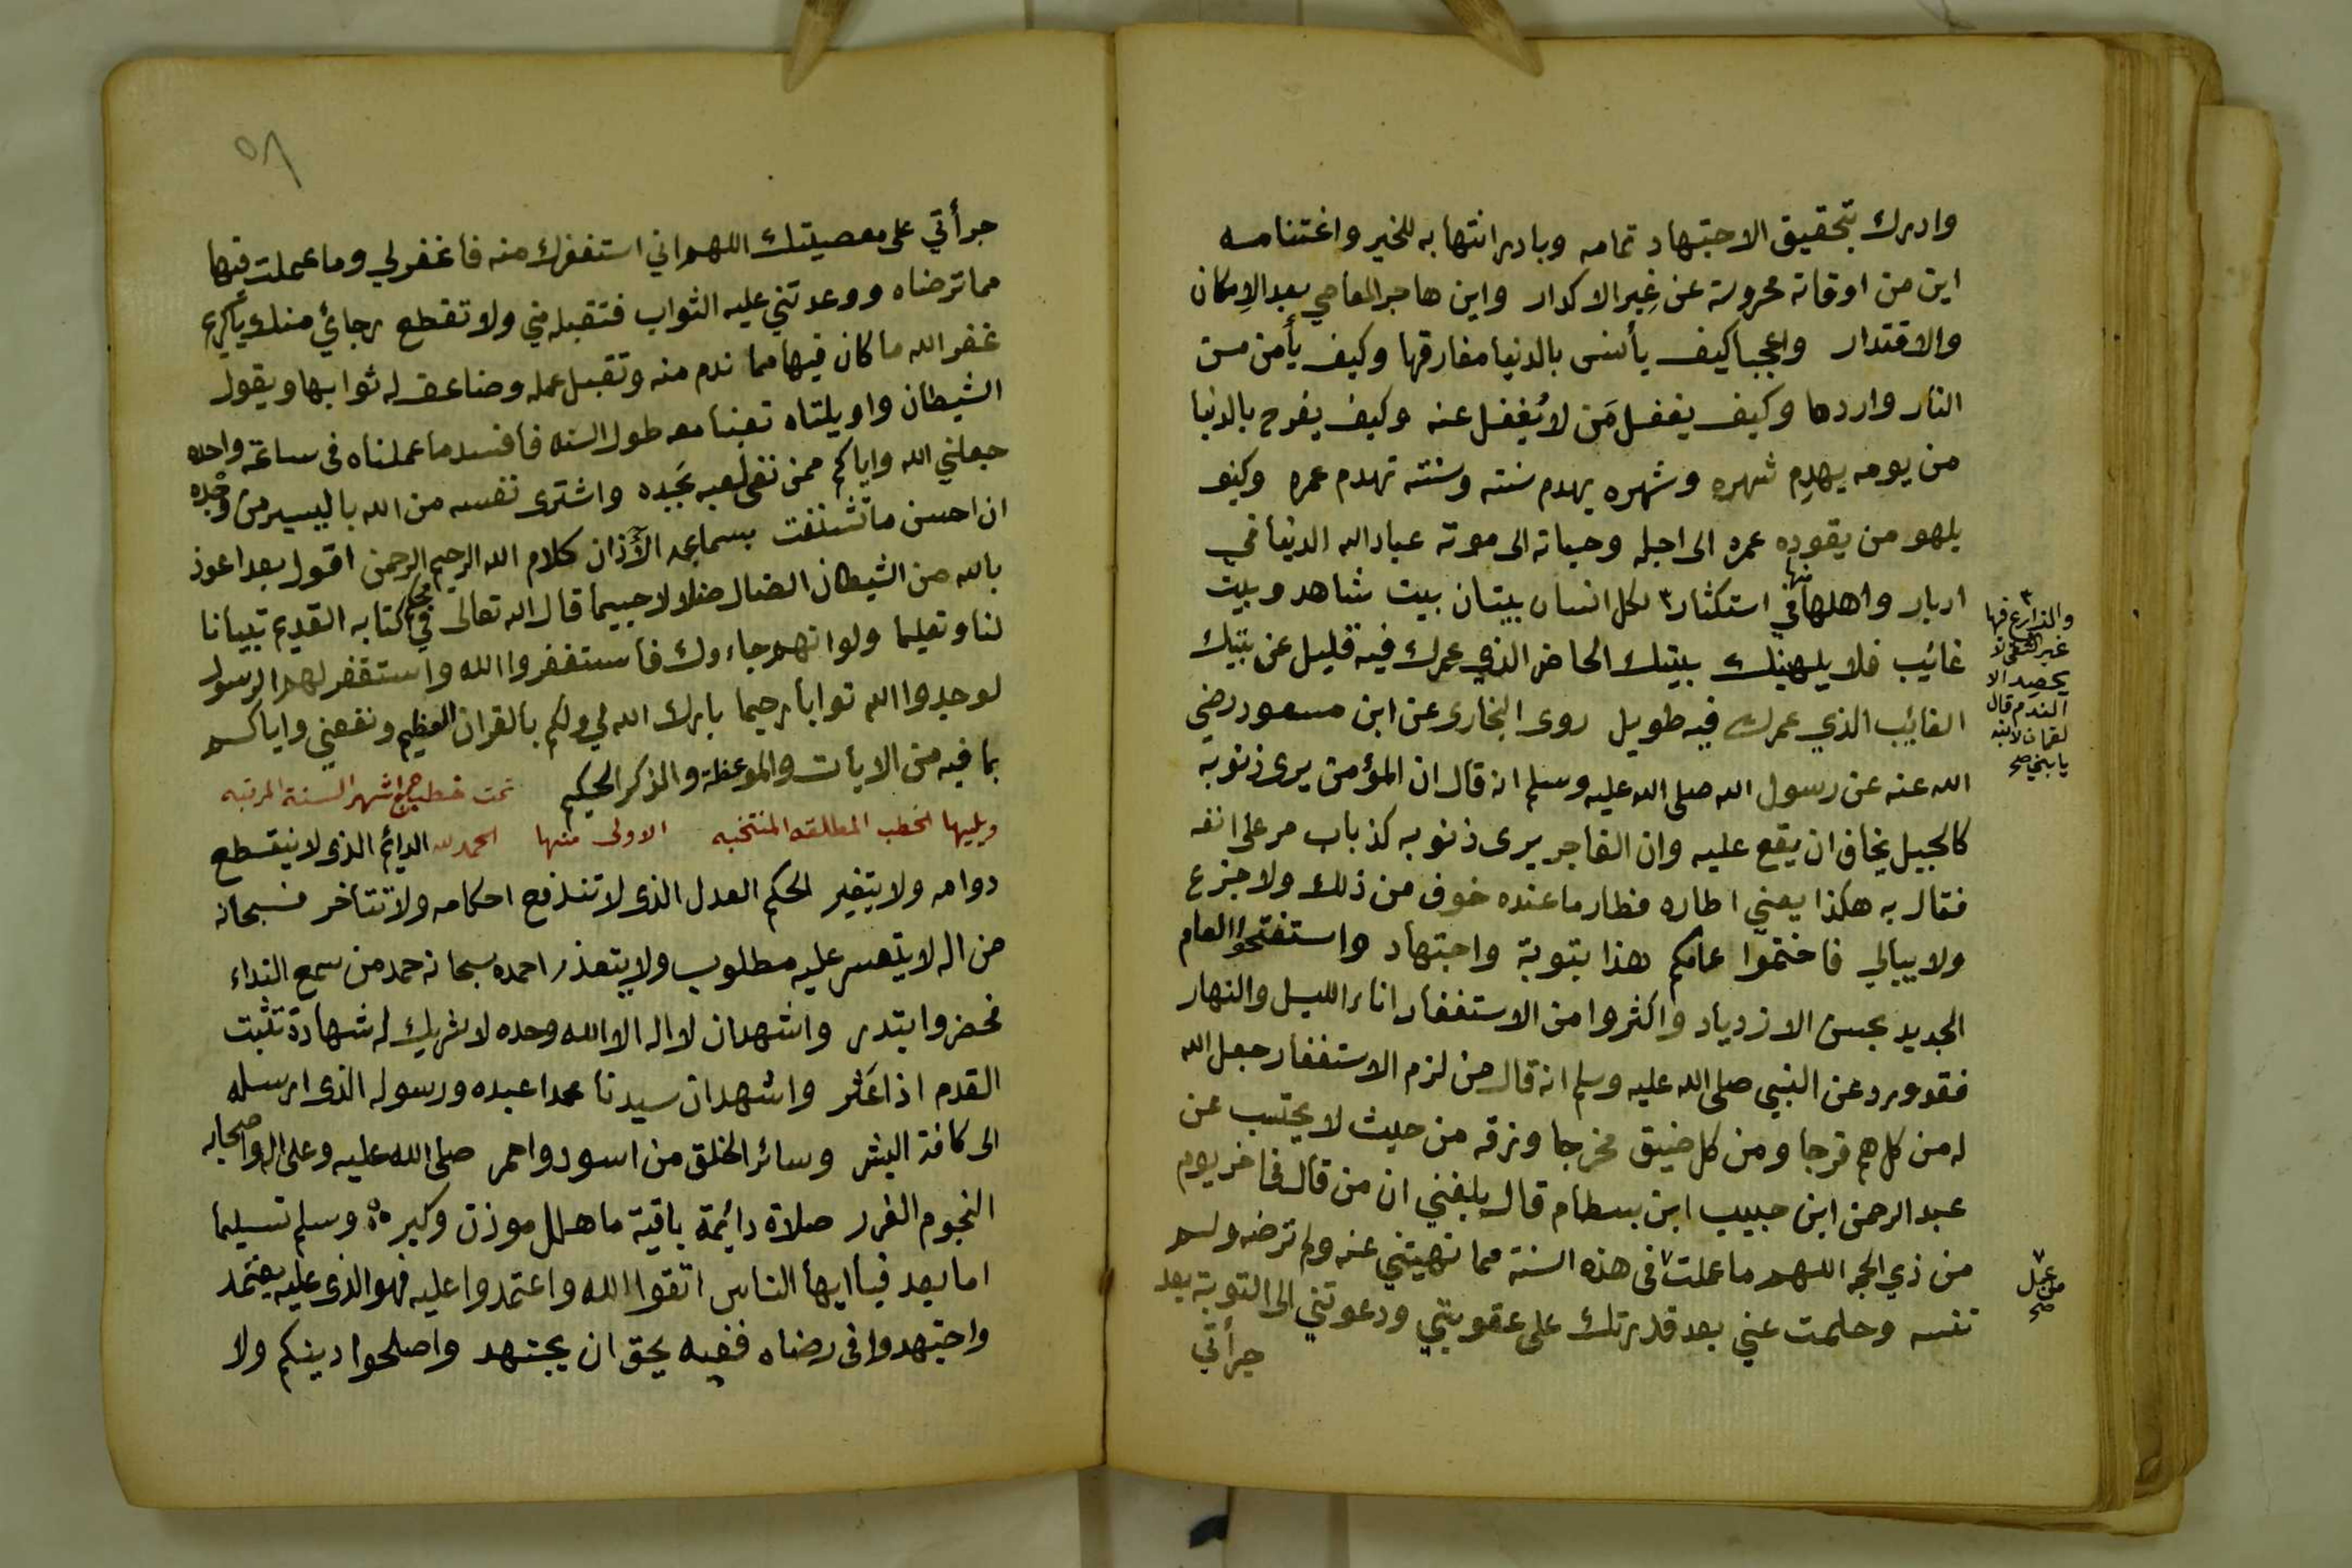 وادرك بتحقيق الاجتهاد تمامه وبادر انتهابه للخير واغتنامه
اين من اوقاته محروسة عن غِير الاكدار واين هاجر المعاصي بعد الإمكان
والاقتدار واعجبا كيف يأنس بالدنيا مفارقها وكيف يأمن من
النار واردها وكيف يغفل مَن لا يُغفل عنه وكيف يفرح بالدنيا
من يومه يهدِم شهره وشهره يهدم سنته وسنته تهدم عمره وكيف
يلهو من يقوده عمره الى اجله وحياته الى موته عباد الله الدنيا في
ادبار واهلها منها في استكثار٣ لكل انسان بيتان بيت شاهد وبيت
غائيب فلا يلهينك بيتك الحاضر الذي عمرك فيه قليل عن بيتك
الغائيب الذي عمرك فيه طويل روى البخارى عن ابن مسعود رضي
الله عنه عن رسول الله صلى الله عليه وسلم انه قال ان المؤمن يرى ذنوبه
كالجبل يخاف ان يقع عليه وان الفاجر يرى ذنوبه كذباب مر على انفه
فقال به هكذا يعني اطاره فطار ما عنده خوف من ذلك ولا جزع
ولا يبالي فاختموا عامكم هذا بتوبة واجتهاد واستفتحوا العام
الجديد بحسن الازدياد واكثروا من الاستغفار اناء الليل والنهار
فقد ورد عن النبي صلى الله عليه وسلم انه قال من لزم الاستغفار جعل الله
له من كل هم فرجا ومن كل ضيق مخرجا ورزقه من حيث لا يحتسب عن
عبد الرحمن ابن حبيب ابن بسطام قال بلغني ان من قال في اخر يوم
من ذي الحجه اللهم ما عملت٧ فى هذه السنة مما نهيتني عنه ولم ترضه ولم
تنسه وحلمت عني بعد قدرتك على عقوبتي ودعوتني الى التوبة بعد
جرأتي
٣
والذارع فيها
غير التقى لا
يحصد الا
الندم قال
لقمان لابنه
يا بني صح
٧
من عمل
صح
٥٨
جرأتي على معصيتك اللهم اني استغفرك منه فاغفر لي وما عملت فيها
مما ترضاه ووعدتني عليه الثواب فتقبله مني ولا تقطع رجائي منك ياكريم
غفر الله ما كان فيها مما ندم منه وتقبل عمله وضاعف له ثوابها ويقول
الشيطان واويلتاه تعبنا معه طول السنه فافسد ما عملناه فى ساعة واحده
جعلني الله واياكم ممن نفى لعبه بجَده واشترى نفسه من الله باليسير من وُجْده
ان احسن ما تشنفت بسماعه الآذان كلام الله الرحيم الرحمن اقول بعد اعوذ
بالله من الشيطان الضال ضلالا جسيما قال الله تعالى في محكم كتابه القديم تبيانا
لنا وتعليما ولو انهم جاءوك فاستغفروا الله واستغفر لهم الرسول
لوجدوا الله توابا رحيما بارك الله لي ولكم بالقران العظيم ونفعني واياكم
بما فيه من الايات والموعظة والذكر الحكيم تمت خطب جمع اشهر السنة المرتبه
ويليها الخطب المطلقه المنتخبه الاولى منها الحمد لله الدائم الذى لا ينقطع
دوامه ولا يتغير الحكم العدل الذى لا تندفع احكامه ولا تتأخر فسبحانه
من اله لا يتعسر عليه مطلوب ولا يتعذر احمده سبحانه حمد من سمع النداء
فحضر وابتدر واشهد ان لا اله الا الله وحده لا شريك له شهادة تثبت
القدم اذا عَثر واشهد ان سيدنا محمدا عبده ورسوله الذى ارسله
الى كافة البشر وسائر الخلق من اسود واحمر صلى الله عليه وعلى اله واصحابه
النجوم الغرر صلاة دائيمة باقية ما هلل موذن وكبر وسلم تسليما
اما بعد فيا ايها الناس اتقوا الله واعتمدوا عليه فهو الذى عليه يعتمد
واجتهدوا فى رضاه ففيه يحق ان يجتهد واصلحوا دينكم ولا